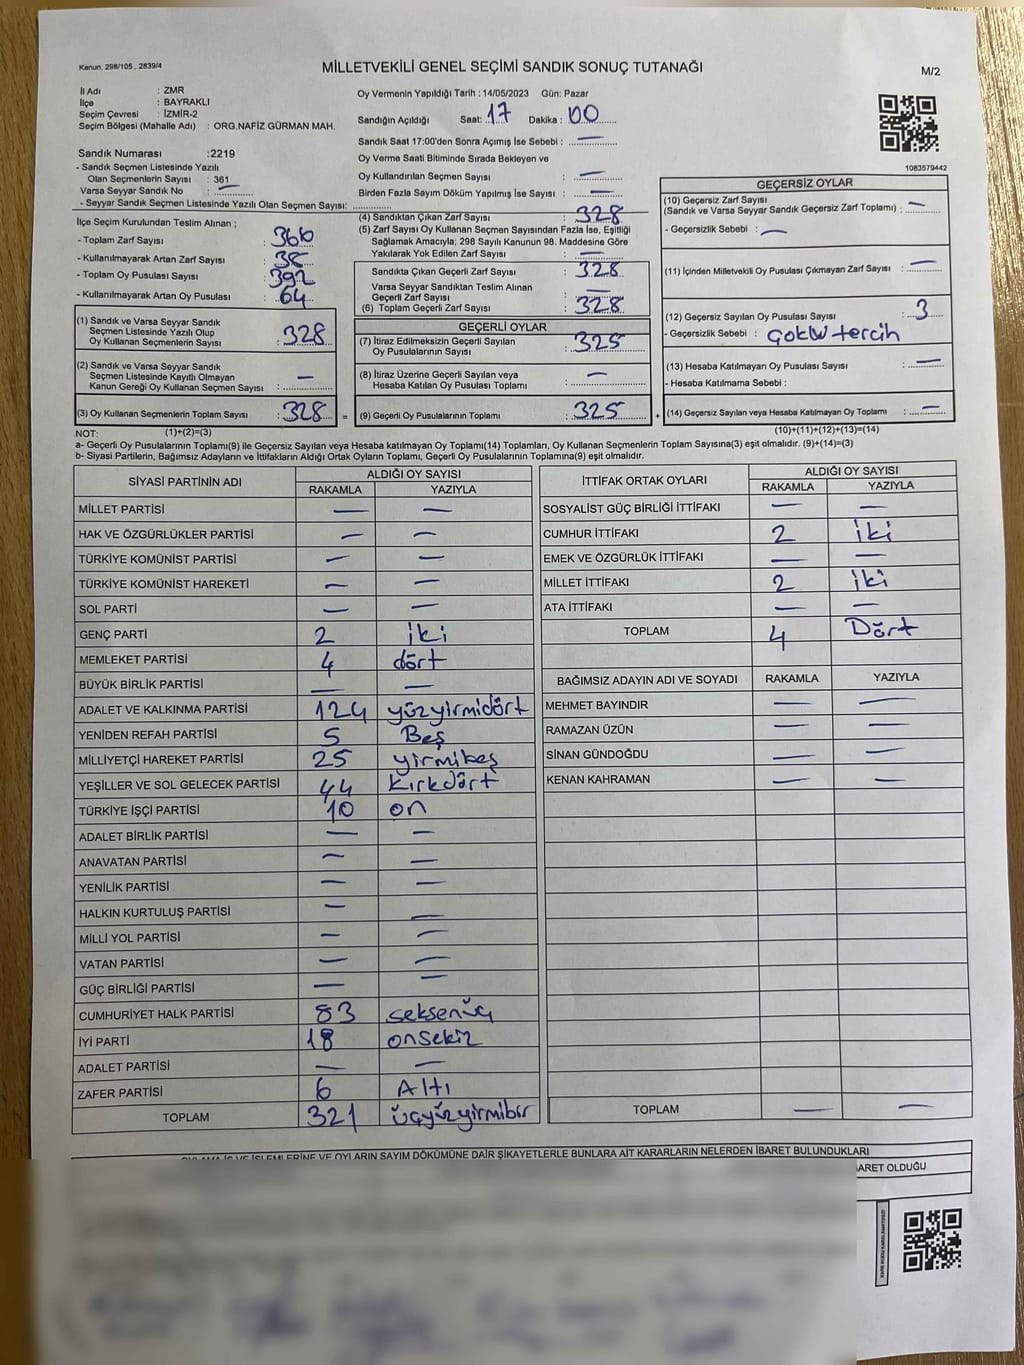 Kanun: 298/105 , 2839/4
MİLLETVEKİLİ GENEL SEÇİMİ SANDIK SONUÇ TUTANAĞI
M/2
İl Adı : ZMR
İlçe : BAYRAKLI
Seçim Çevresi : İZMİR-2
Seçim Bölgesi (Mahalle Adı) : ORG.NAFİZ GÜRMAN MAH.
Oy Vermenin Yapıldığı Tarih : 14/05/2023 Gün: Pazar
Sandığın Açıldığı Saat: 17 Dakika : 00
Sandık Saat 17:00'den Sonra Açımış İse Sebebi : —
Oy Verme Saati Bitiminde Sırada Bekleyen ve
Oy Kullandırılan Seçmen Sayısı : —
Birden Fazla Sayım Döküm Yapılmış İse Sayısı : —
1083579442
Sandık Numarası :2219
- Sandık Seçmen Listesinde Yazılı
Olan Seçmenlerin Sayısı : 361
Varsa Seyyar Sandık No : —
- Seyyar Sandık Seçmen Listesinde Yazılı Olan Seçmen Sayısı:
İlçe Seçim Kurulundan Teslim Alınan ;
- Toplam Zarf Sayısı : 366
- Kullanılmayarak Artan Zarf Sayısı : 38
- Toplam Oy Pusulası Sayısı : 392
- Kullanılmayarak Artan Oy Pusulası : 64
(1) Sandık ve Varsa Seyyar Sandık
Seçmen Listesinde Yazılı Olup
Oy Kullanan Seçmenlerin Sayısı : 328
(2) Sandık ve Varsa Seyyar Sandık
Seçmen Listesinde Kayıtlı Olmayan
Kanun Gereği Oy Kullanan Seçmen Sayısı : —
(3) Oy Kullanan Seçmenlerin Toplam Sayısı : 328 =
(4) Sandıktan Çıkan Zarf Sayısı : 328
(5) Zarf Sayısı Oy Kullanan Seçmen Sayısından Fazla İse, Eşitliği
Sağlamak Amacıyla; 298 Sayılı Kanunun 98. Maddesine Göre
Yakılarak Yok Edilen Zarf Sayısı : —
Sandıkta Çıkan Geçerli Zarf Sayısı : 328
Varsa Seyyar Sandıktan Teslim Alınan
Geçerli Zarf Sayısı : —
(6) Toplam Geçerli Zarf Sayısı : 328
GEÇERLİ OYLAR
(7) İtiraz Edilmeksizin Geçerli Sayılan
Oy Pusulalarının Sayısı : 325
(8) İtiraz Üzerine Geçerli Sayılan veya
Hesaba Katılan Oy Pusulası Toplamı : —
(9) Geçerli Oy Pusulalarının Toplamı : 325 +
GEÇERSİZ OYLAR
(10) Geçersiz Zarf Sayısı
(Sandık ve Varsa Seyyar Sandık Geçersiz Zarf Toplamı) : —
- Geçersizlik Sebebi : —
(11) İçinden Milletvekili Oy Pusulası Çıkmayan Zarf Sayısı : —
(12) Geçersiz Sayılan Oy Pusulası Sayısı : 3
- Geçersizlik Sebebi : çoklu tercih
(13) Hesaba Katılmayan Oy Pusulası Sayısı : —
- Hesaba Katılmama Sebebi :
(14) Geçersiz Sayılan veya Hesaba Katılmayan Oy Toplamı : —
NOT: (1)+(2)=(3)
(10)+(11)+(12)+(13)=(14)
a- Geçerli Oy Pusulalarının Toplamı(9) ile Geçersiz Sayılan veya Hesaba katılmayan Oy Toplamı(14) Toplamları, Oy Kullanan Seçmenlerin Toplam Sayısına(3) eşit olmalıdır. (9)+(14)=(3)
b- Siyasi Partilerin, Bağımsız Adayların ve İttifakların Aldığı Ortak Oyların Toplamı, Geçerli Oy Pusulalarının Toplamına(9) eşit olmalıdır.
SİYASİ PARTİNİN ADI ALDIĞI OY SAYISI
RAKAMLA YAZIYLA
MİLLET PARTİSİ — —
HAK VE ÖZGÜRLÜKLER PARTİSİ — —
TÜRKİYE KOMÜNİST PARTİSİ — —
TÜRKİYE KOMÜNİST HAREKETİ — —
SOL PARTİ — —
GENÇ PARTİ 2 iki
MEMLEKET PARTİSİ 4 dört
BÜYÜK BİRLİK PARTİSİ — —
ADALET VE KALKINMA PARTİSİ 124 yüzyirmidört
YENİDEN REFAH PARTİSİ 5 Beş
MİLLİYETÇİ HAREKET PARTİSİ 25 yirmibeş
YEŞİLLER VE SOL GELECEK PARTİSİ 44 Kırkdört
TÜRKİYE İŞÇİ PARTİSİ 10 on
ADALET BİRLİK PARTİSİ — —
ANAVATAN PARTİSİ — —
YENİLİK PARTİSİ — —
HALKIN KURTULUŞ PARTİSİ — —
MİLLİ YOL PARTİSİ — —
VATAN PARTİSİ — —
GÜÇ BİRLİĞİ PARTİSİ — —
CUMHURİYET HALK PARTİSİ 83 seksenüç
İYİ PARTİ 18 onsekiz
ADALET PARTİSİ — —
ZAFER PARTİSİ 6 Altı
TOPLAM 321 üçyüzyirmibir
İTTİFAK ORTAK OYLARI ALDIĞI OY SAYISI
RAKAMLA YAZIYLA
SOSYALİST GÜÇ BİRLİĞİ İTTİFAKI — —
CUMHUR İTTİFAKI 2 iki
EMEK VE ÖZGÜRLÜK İTTİFAKI — —
MİLLET İTTİFAKI 2 iki
ATA İTTİFAKI — —
TOPLAM 4 Dört
BAĞIMSIZ ADAYIN ADI VE SOYADI RAKAMLA YAZIYLA
MEHMET BAYINDIR — —
RAMAZAN ÜZÜN — —
SİNAN GÜNDOĞDU — —
KENAN KAHRAMAN — —
TOPLAM — —
OYLAMA İŞ VE İŞLEMLERİNE VE OYLARIN SAYIM DÖKÜMÜNE DAİR ŞİKAYETLERLE BUNLARA AİT KARARLARIN NELERDEN İBARET BULUNDUKLARI
BARET OLDUĞU